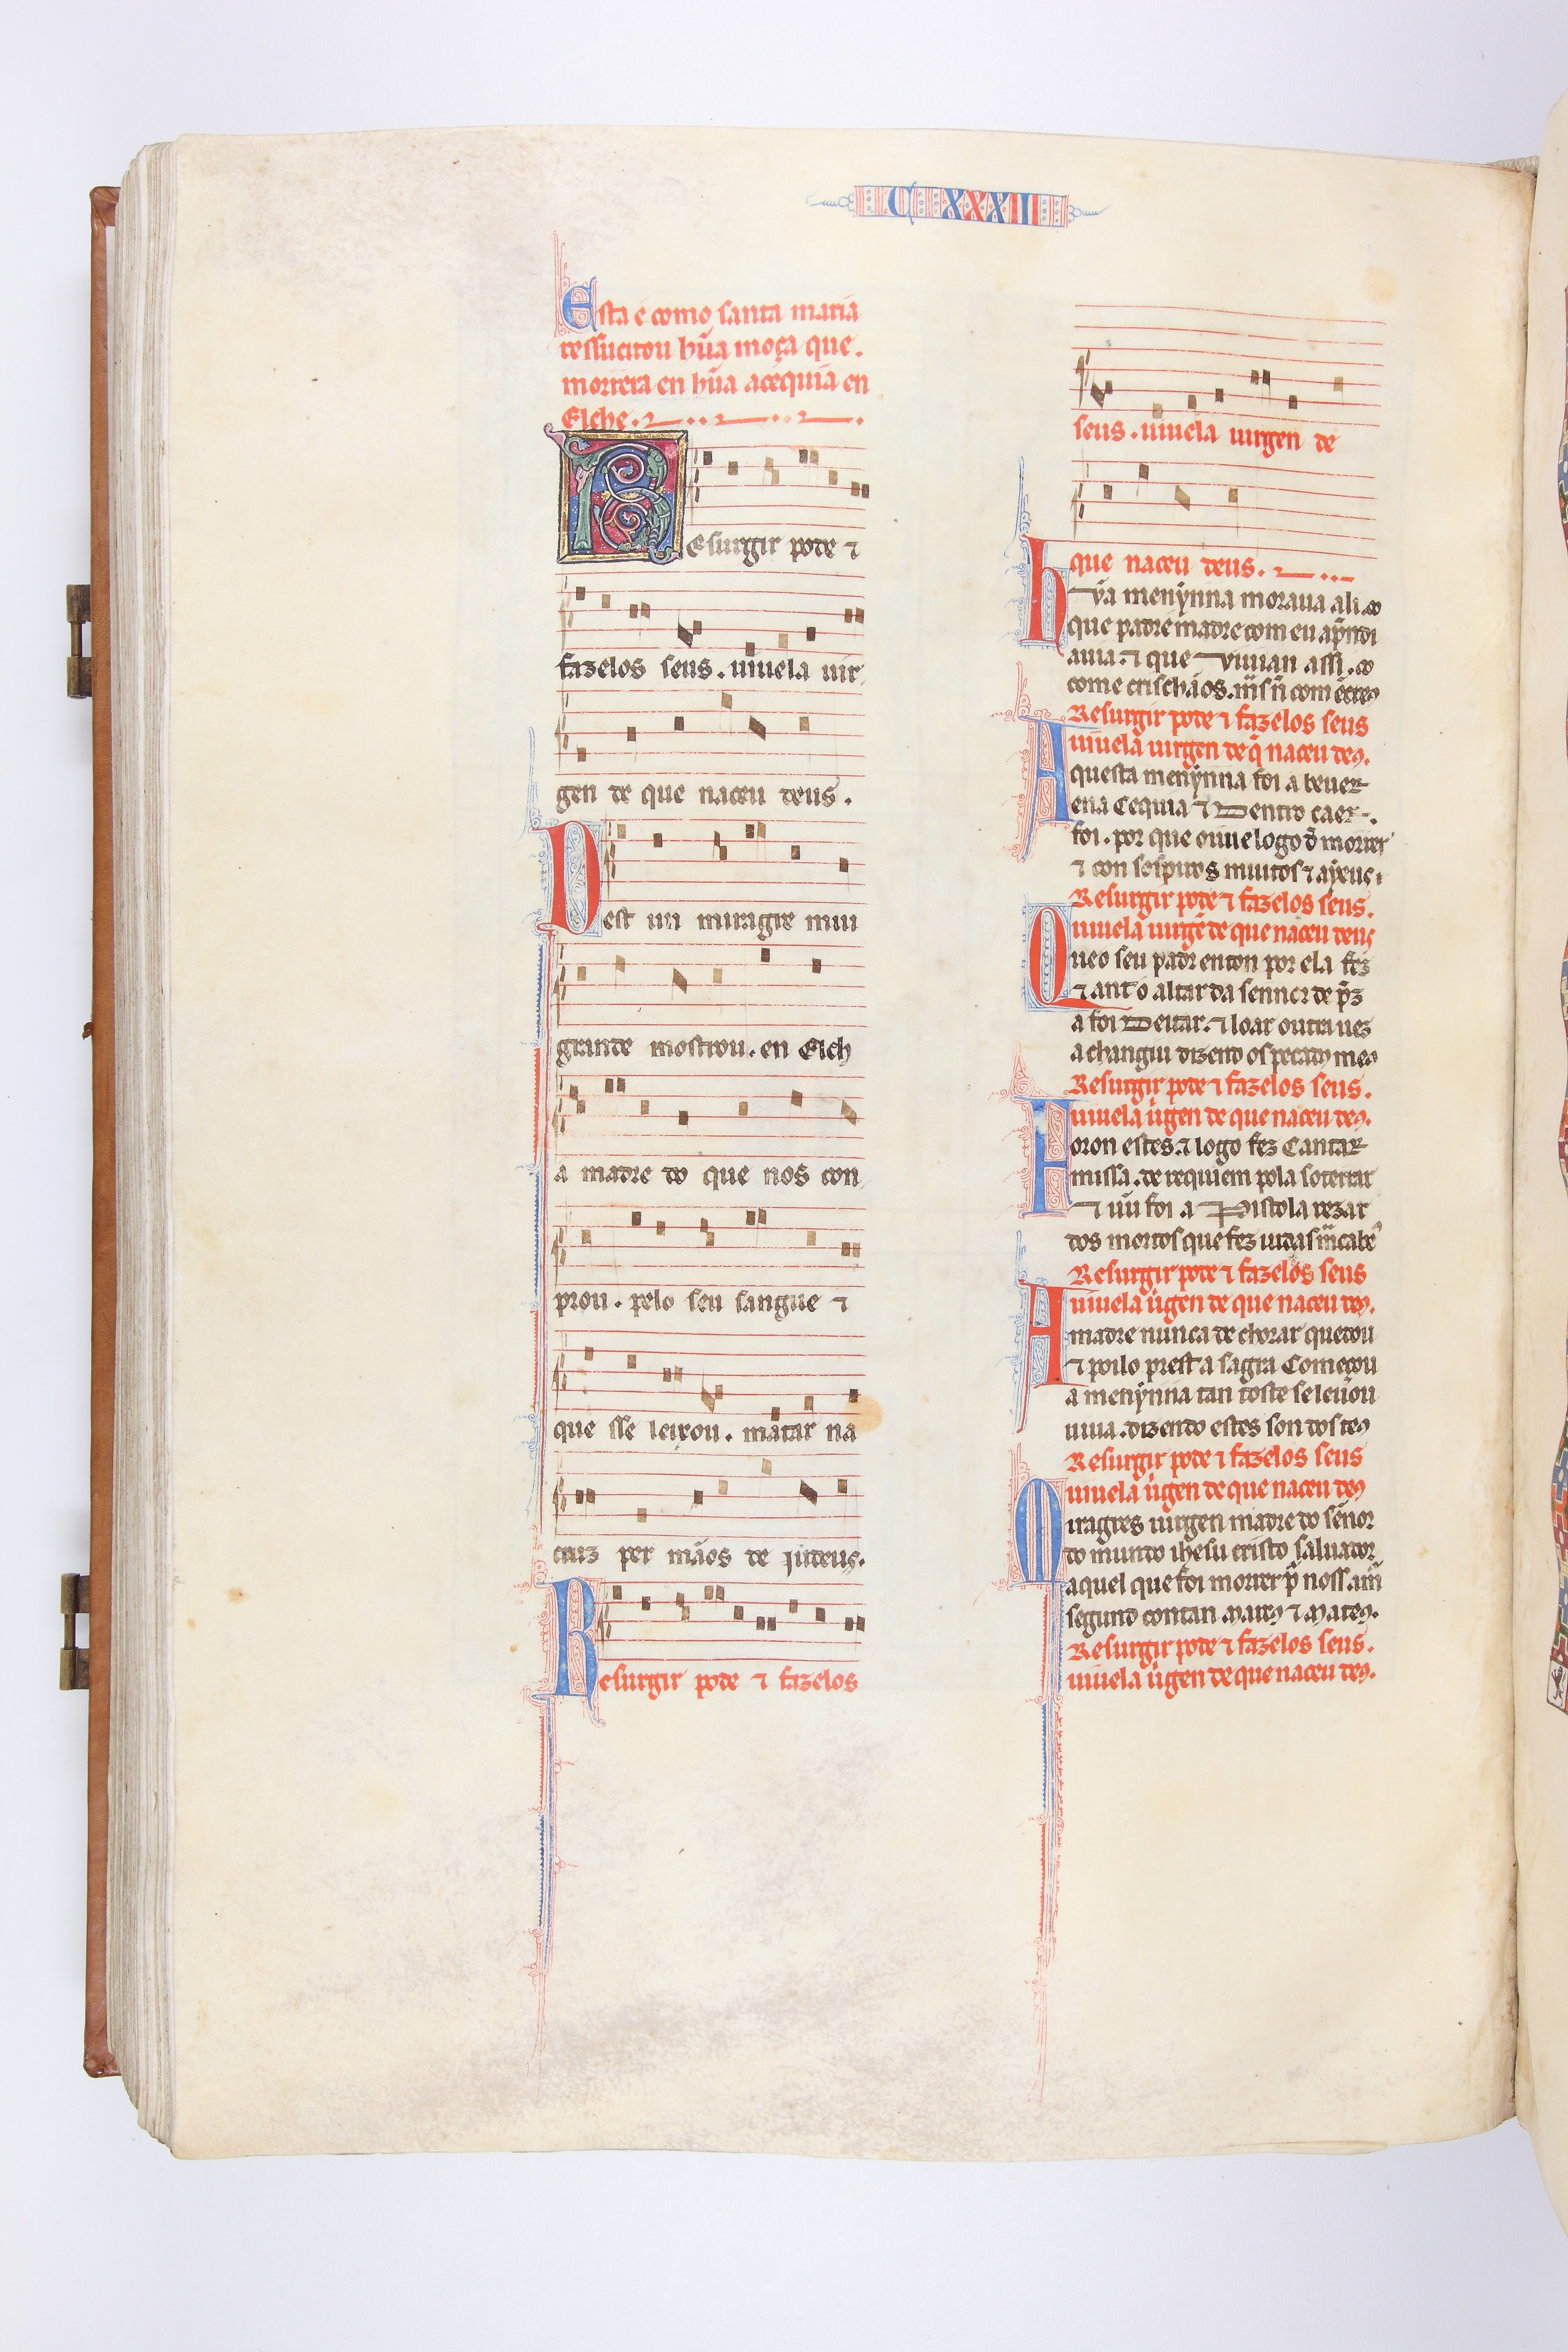 C XXXIII
Esta é como santa maria
ressucitou hũa moça que.
morrera en hũa acequia en
Elche.
Resurgir pode ⁊
fazelos seus. uiuela uir
gen de que naceu deus.
Dest un miragre mui
grande mostrou. en Elch
a madre do que nos con
prou. pelo seu sangue ⁊
que sse leixou. matar na
cruz per mãos de judeus.
Resurgir pode ⁊ fazelos
seus. uiuela uirgen de
que naceu deus.
hũa menỹnna moraua ali. co
que padre madre com eu aprendi
auia. ⁊ que uiuian assi. co
come crischãos. mais
Resurgir pode ⁊ fazelos seus
uiuela uirgen de q̃ naceu deꝯ.
Aquesta menỹnna foi a beuer
ena Cequia ⁊ Dentro caer.
foi. por que ouue logo d̃ morrer
⁊ con sospiros muitos ⁊ aỹeus.
Resurgir pode ⁊ fazelos seus.
uiuela uirgẽ de que naceu deus
Queo seu padr enton por ela fez
⁊ ant o altar da sennor de p̃z
a foi Deitar. ⁊ loar outra uez
a changiu dizend os pecadꝯ meꝯ
Resurgir pode ⁊ fazelos seus.
uiuela ũgen de que naceu deꝯ.
Foron estes. ⁊ logo fez Cantar
missa. de requiem pola soterrar
⁊ ũu foi a Pistola rezar
dos mortos que fez iudas
Resurgir pode ⁊ fazelos seus
uiuela ũgen de que naceu deꝯ.
A madre nunca de chorar quedou
⁊ poilo prest a sagra Começou
a menỹnna tan toste se leuou
uiua. dizendo estes son dos teꝯ
Resurgir pode ⁊ fazelos seus
uiuela ũgen de que naceu deꝯ
Miragres uirgen madre do señor
do mundo ihesu cristo saluador
aquel que foi morrer p̃ noss am̃
segund contan Marcꝯ ⁊ Mateꝯ.
Resurgir pode ⁊ fazelos seus.
uiuela ũgen de que naceu deꝯ.